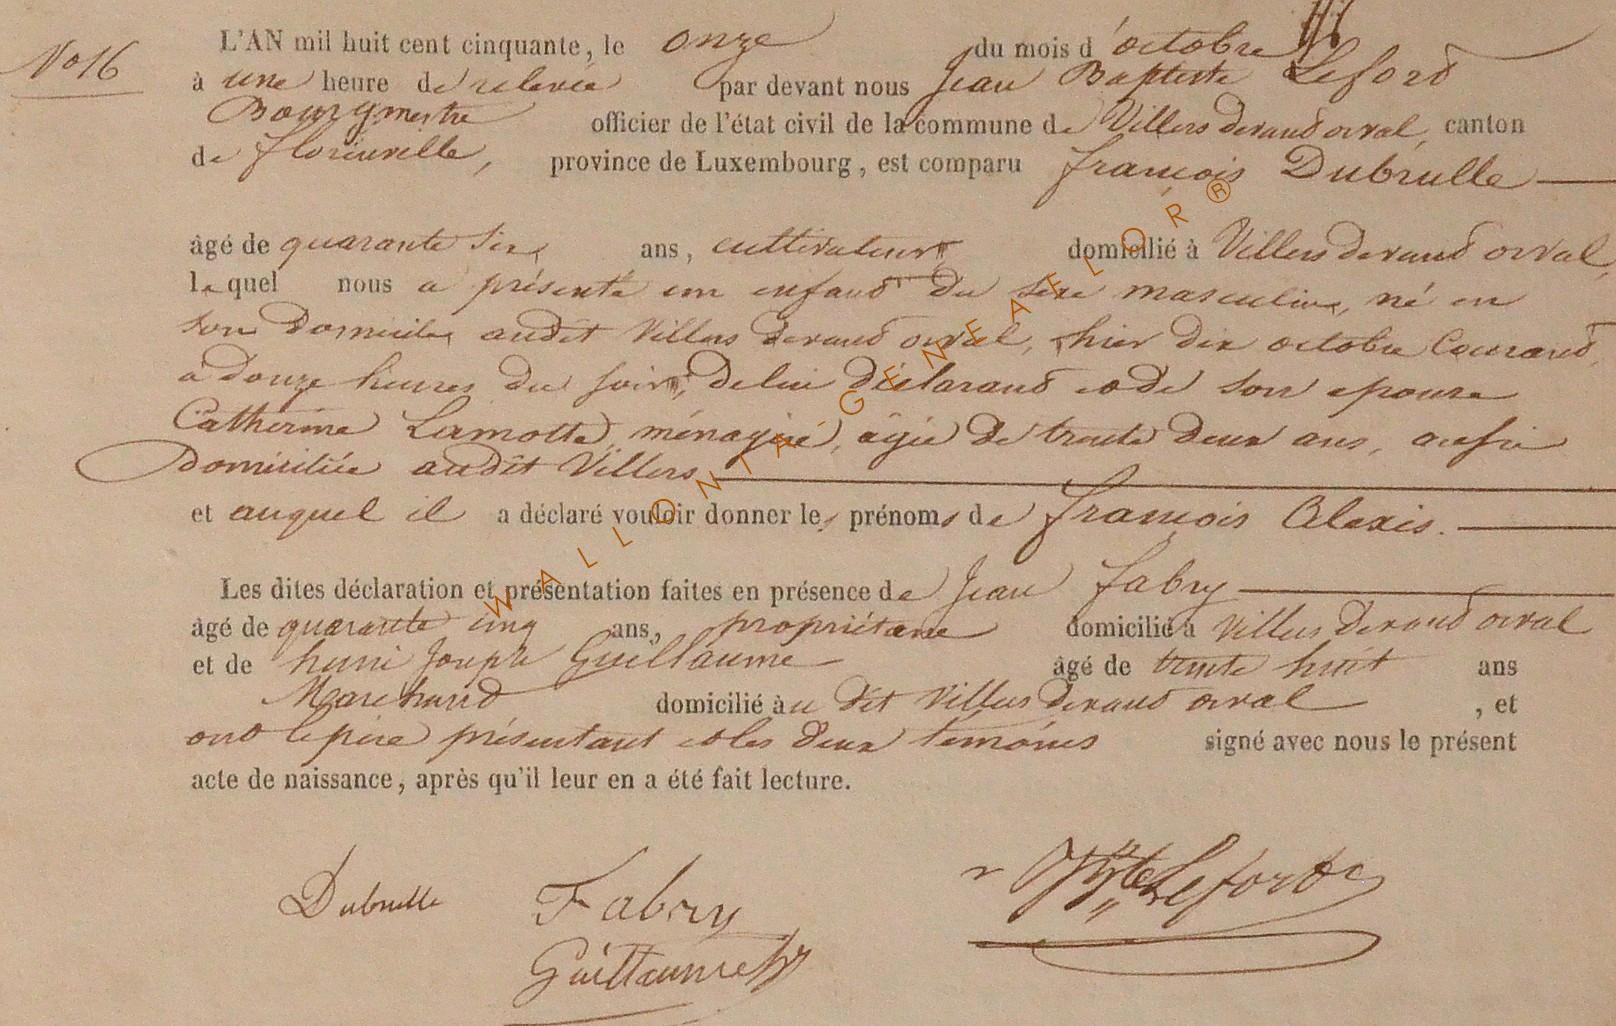 No 16
L'AN mil huit cent cinquante, le onze du mois d'octobre
à une heure de relevée par devant nous Jean Baptiste Lefort
Bourgmestre officier de l'état civil de la commune de Villers devant orval, canton
de florenville, province de Luxembourg, est comparu françois Dubrulle
âgé de quarante six ans, cultivateur domicilié à Villers devant orval,
lequel nous a présenté un enfant du sexe masculin, né en
son domicile audit Villers devant orval, hier dix octobre Courant,
a douze heures du soir, de lui déclarant et de son epouse
Catherine Lamotte, ménagère, âgée de trente deux ans, aussi
domiciliée audit Villers
et auquel il a déclaré vouloir donner les prénoms de françois Alexis.
Les dites déclaration et présentation faites en présence de Jean fabry
âgé de quarante cinq ans, propriétaire domicilié à Villers devant orval
et de henri Joseph Guillaume âgé de trente huit ans
Marchand domicilié au dit Villers devant orval, et
ont le père présentant et les deux témoins signé avec nous le présent
acte de naissance, après qu'il leur en a été fait lecture.
Dubrulle Fabry Lefort
Guillaume hj
WALLONIA GENEALOR®